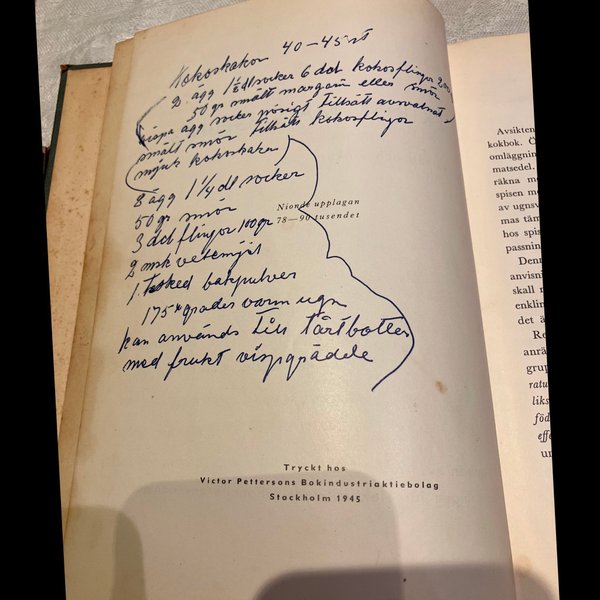 Kokoskakor 40-45 st
2 ägg 1½ dl socker 6 dcl kokosflingor 200
50 gr smält margarin eller smör
vispa ägg socker pösigt tillsätt avsvalnat
smält smör tillsätt kokosflingor
mjuk kokoskaka
3 ägg 1¼ dl socker
50 gr smör
3 dcl flingor 100gr
2 msk vetemjöl
1 tesked bakpulver
175 grader varm ugn
kan används till tårtbotten
med frukt vispgrädde
Nionde upplagan
78—90 tusendet
Tryckt hos
Victor Pettersons Bokindustriaktiebolag
Stockholm 1945
Avsikten
kokbok.
omläggning
matsedel.
räkna
spisen
av ugnsv
mas
hos spis
passning
anvisni
skall
enklin
det
anrä
grup
ratu
liks
föd
effe